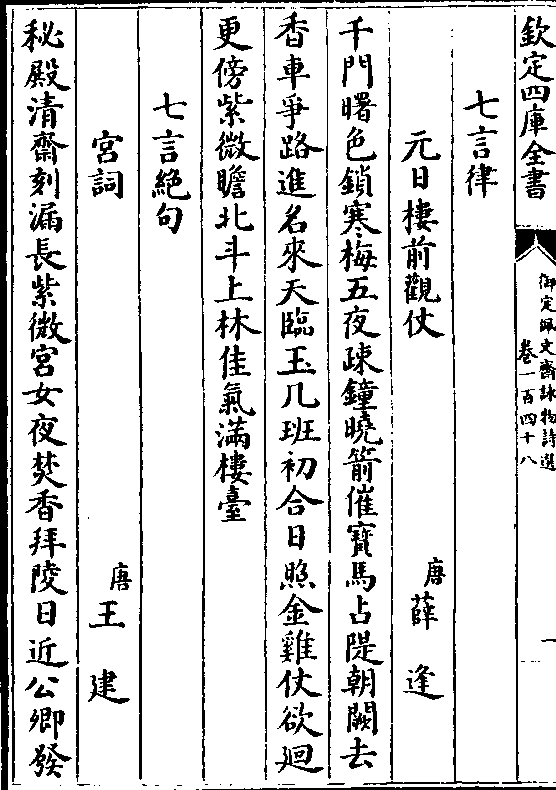 欽定四庫全書
御定佩文齋詠物詩選
卷一百四十八
一
七言律
元日樓前觀仗 唐 薛逢
千門曙色鎖寒梅五夜疎鐘曉箭催寳馬占隄朝闕去
香車爭路進名來天臨玉几班初合日照金雞仗欲廻
更傍紫微瞻北斗上林佳氣滿樓臺
七言絶句
宮詞 唐 王建
秘殿清齋刻漏長紫微宮女夜焚香拜陵日近公卿發